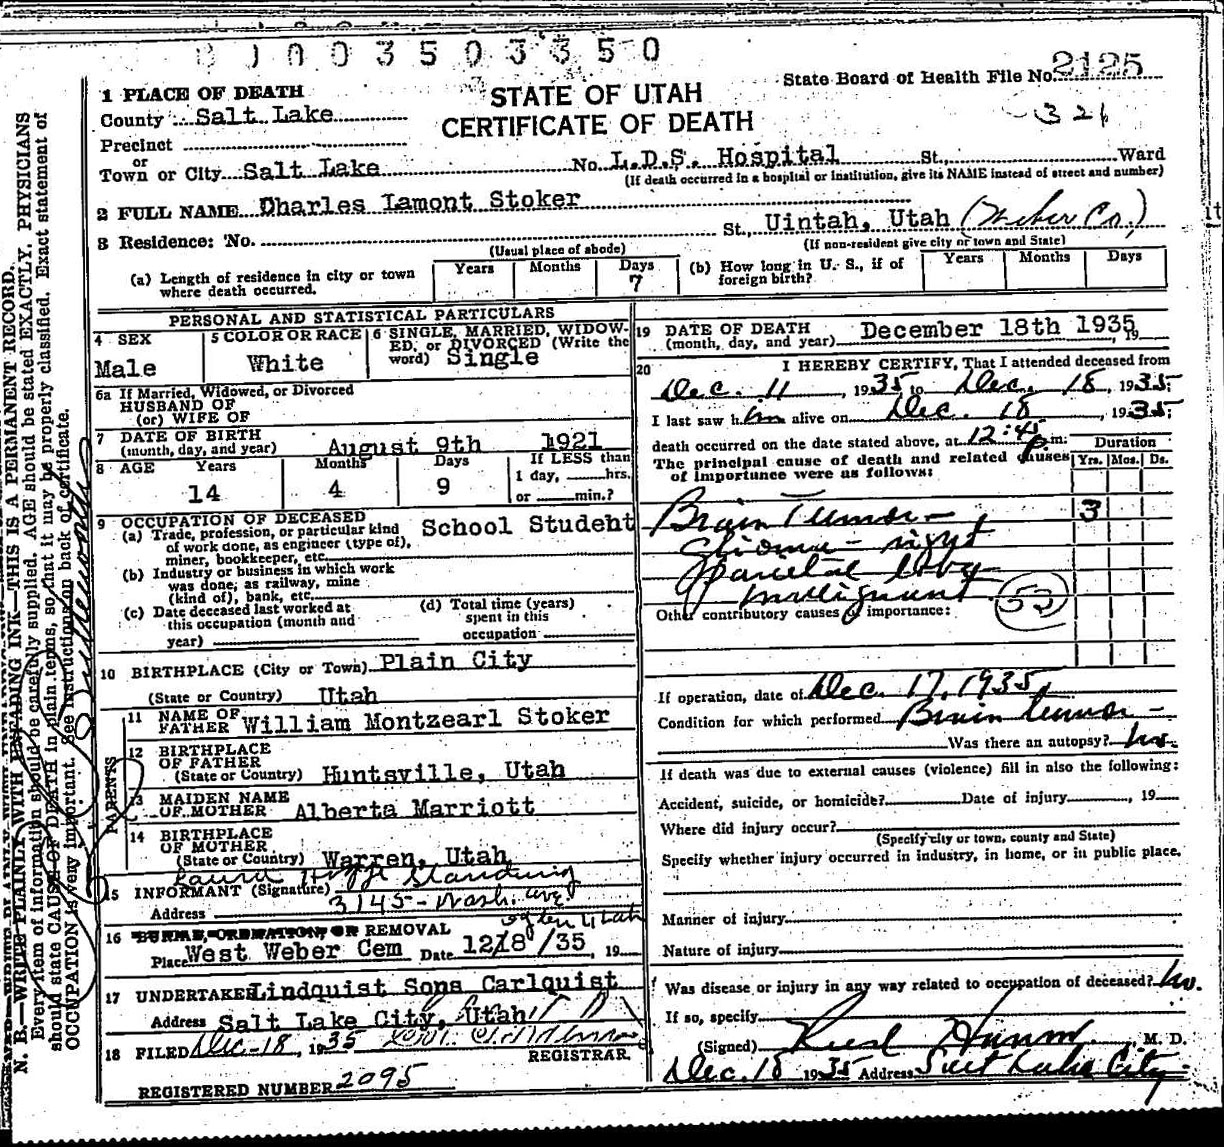 8100350 3350
State Board of Health File No. 2125
321
STATE OF UTAH
CERTIFICATE OF DEATH
1 PLACE OF DEATH
County Salt Lake
Precinct
or
Town or City Salt Lake No. L.D.S. Hospital St., Ward
(If death occurred in a hospital or institution, give its NAME instead of street and number)
2 FULL NAME Charles Lamont Stoker
3 Residence: No. St., Uintah, Utah (Weber Co.)
(Usual place of abode) (If non-resident give city or town and State)
(a) Length of residence in city or town where death occurred. Years Months Days 7
(b) How long in U. S., if of foreign birth? Years Months Days
PERSONAL AND STATISTICAL PARTICULARS
4 SEX Male
5 COLOR OR RACE White
6 SINGLE, MARRIED, WIDOWED, or DIVORCED (Write the word) Single
6a If Married, Widowed, or Divorced
HUSBAND OF
(or) WIFE OF
7 DATE OF BIRTH
(month, day, and year) August 9th 1921
8 AGE Years Months Days If LESS than
1 day, hrs.
14 4 9 or min.?
9 OCCUPATION OF DECEASED
(a) Trade, profession, or particular kind of work done, as engineer (type of), miner, bookkeeper, etc. School Student
(b) Industry or business in which work was done; as railway, mine (kind of), bank, etc.
(c) Date deceased last worked at this occupation (month and year)
(d) Total time (years) spent in this occupation
10 BIRTHPLACE (City or Town) Plain City
(State or Country) Utah
PARENTS
11 NAME OF FATHER William Montzearl Stoker
12 BIRTHPLACE OF FATHER
(State or Country) Huntsville, Utah
13 MAIDEN NAME OF MOTHER Alberta Marriott
14 BIRTHPLACE OF MOTHER
(State or Country) Warren, Utah
15 INFORMANT (Signature) Standing
Address 3145 - Wash. ave. Ogden Utah
16 BURIAL, CREMATION, OR REMOVAL
Place West Weber Cem Date 12/18/35, 19
17 UNDERTAKER Lindquist Sons Carlquist
Address Salt Lake City, Utah
18 FILED Dec-18, 1935
REGISTRAR.
REGISTERED NUMBER 2095
19 DATE OF DEATH
(month, day, and year) December 18th 1935, 19
20 I HEREBY CERTIFY, That I attended deceased from
Dec. 11, 1935 to Dec. 18, 1935;
I last saw him alive on Dec. 18, 1935;
death occurred on the date stated above, at 12:45 p m:
The principal cause of death and related causes of importance were as follows:
Duration
Yrs. Mos. Ds.
Brain Tumor - 3
Glioma - right
parietal lobe
malignant
53
Other contributory causes of importance:
If operation, date of Dec. 17, 1935
Condition for which performed Brain tumor -
Was there an autopsy? no.
If death was due to external causes (violence) fill in also the following:
Accident, suicide, or homicide? Date of injury, 19
Where did injury occur?
(Specify city or town, county and State)
Specify whether injury occurred in industry, in home, or in public place.
Manner of injury
Nature of injury
Was disease or injury in any way related to occupation of deceased? no.
If so, specify
(Signed) M. D.
Dec. 18 1935 Address Salt Lake City
N. B.—WRITE PLAINLY WITH UNFADING INK—THIS IS A PERMANENT RECORD.
Every item of information should be carefully supplied. AGE should be stated EXACTLY. PHYSICIANS
should state CAUSE OF DEATH in plain terms, so that it may be properly classified. Exact statement of
OCCUPATION is very important. See instructions on back of certificate.